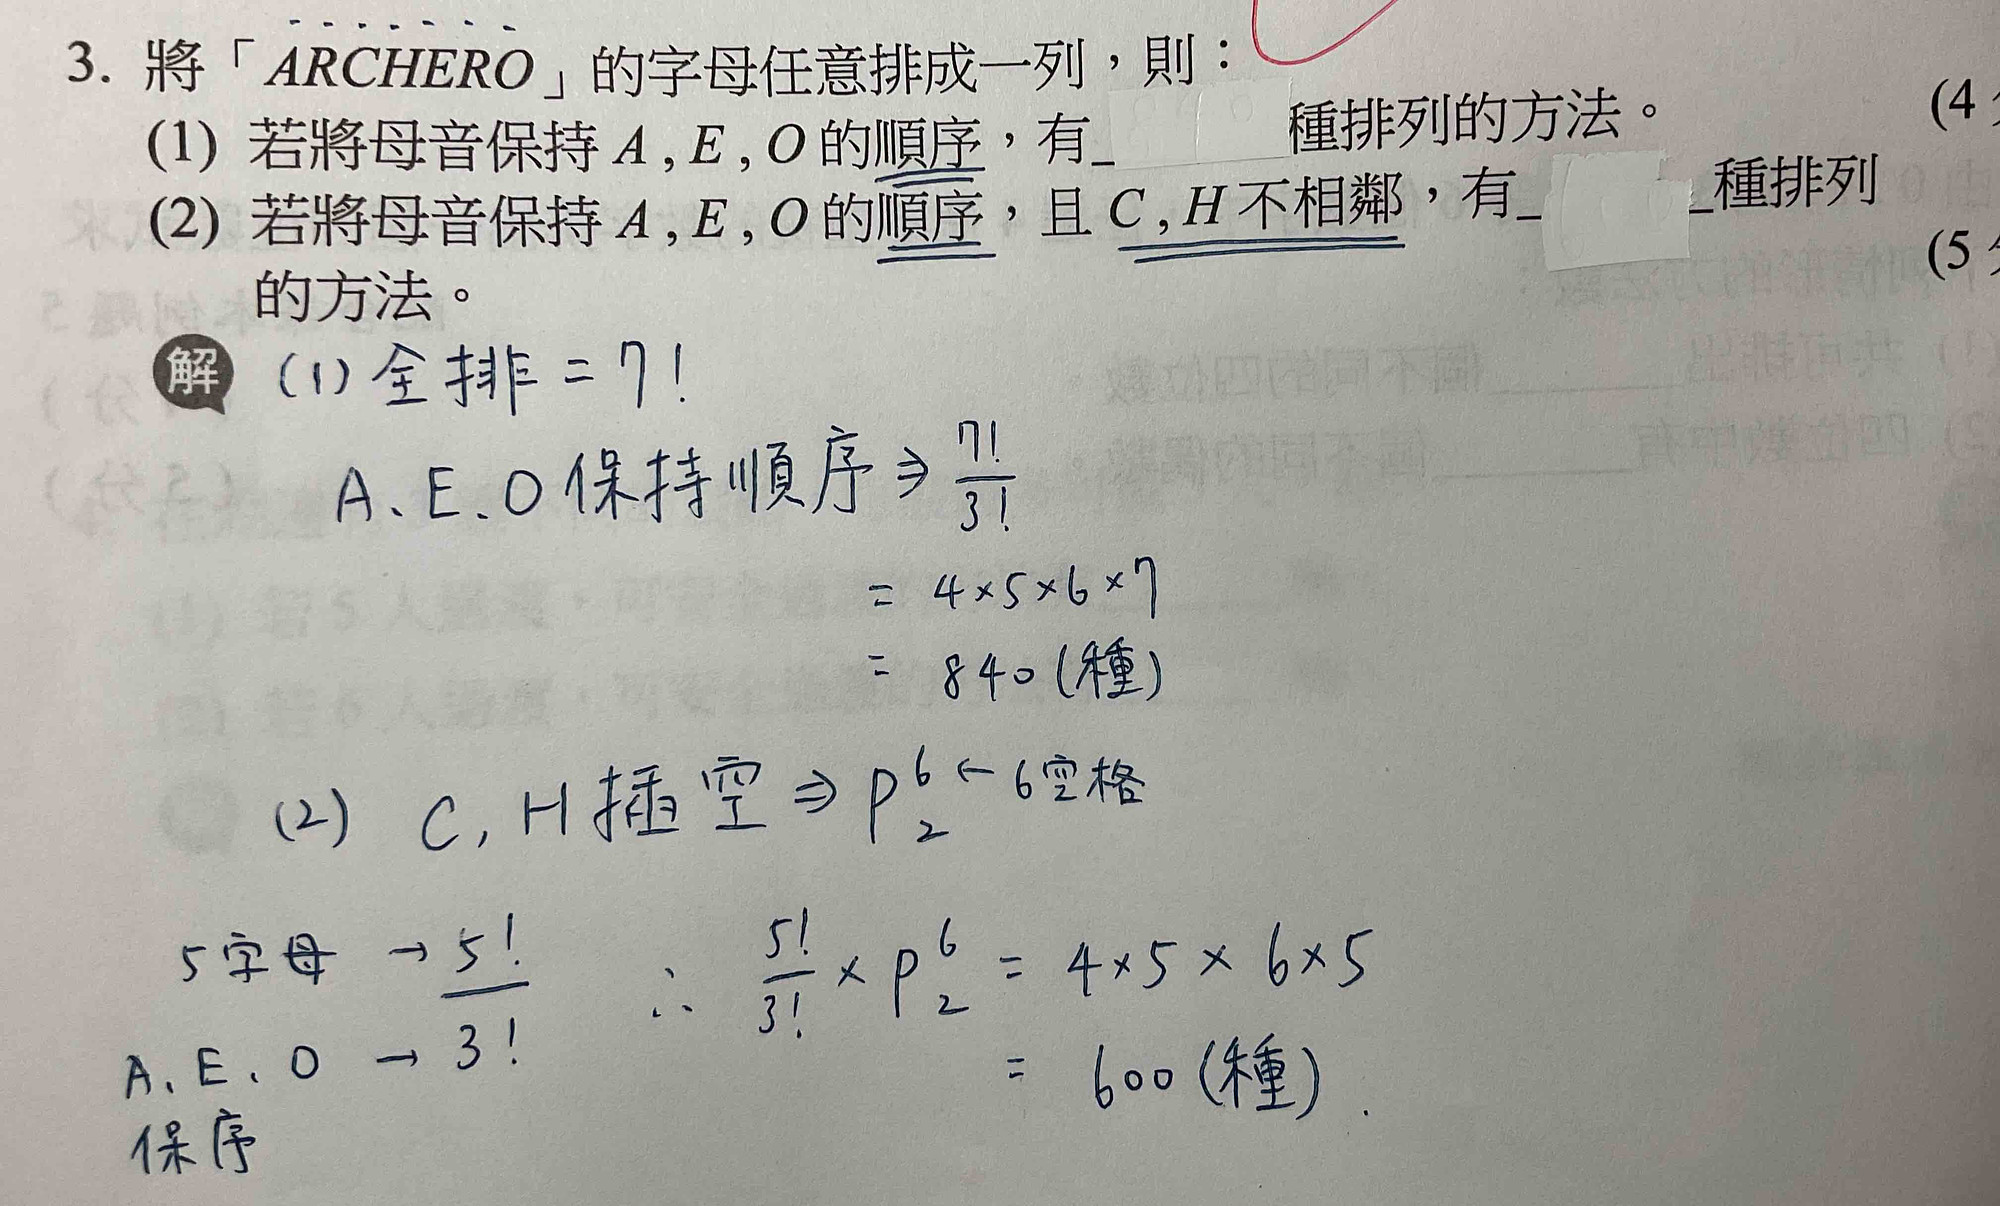 3. 將「ARCHERO」的字母任意排成一列，則：
(1) 若將母音保持 A , E , O 的順序，有_ 種排列的方法。 (4
(2) 若將母音保持 A , E , O 的順序，且 C , H 不相鄰，有_ _種排列
的方法。 (5
解 (1) 全排 = 7!
A、E、O 保持順序 ⇒ 7!/3!
= 4×5×6×7
= 840 (種)
(2) C, H 插空 ⇒ P⁶₂ ← 6空格
5字母 → 5!/3! ∴ 5!/3! × P⁶₂ = 4×5×6×5
A、E、O → 3! = 600 (種).
保序